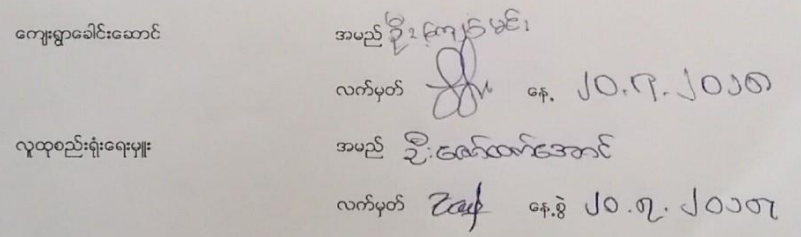 ကျေးရွာခေါင်းဆောင် အမည် ဦးကျော်မင်း
လက်မှတ် နေ့ ၂၀.၇.၂၀၁၈
လူထုစည်းရုံးရေးမှူး အမည် ဦးဇော်ထက်အောင်
လက်မှတ် နေ့စွဲ ၂၀.၇.၂၀၁၈